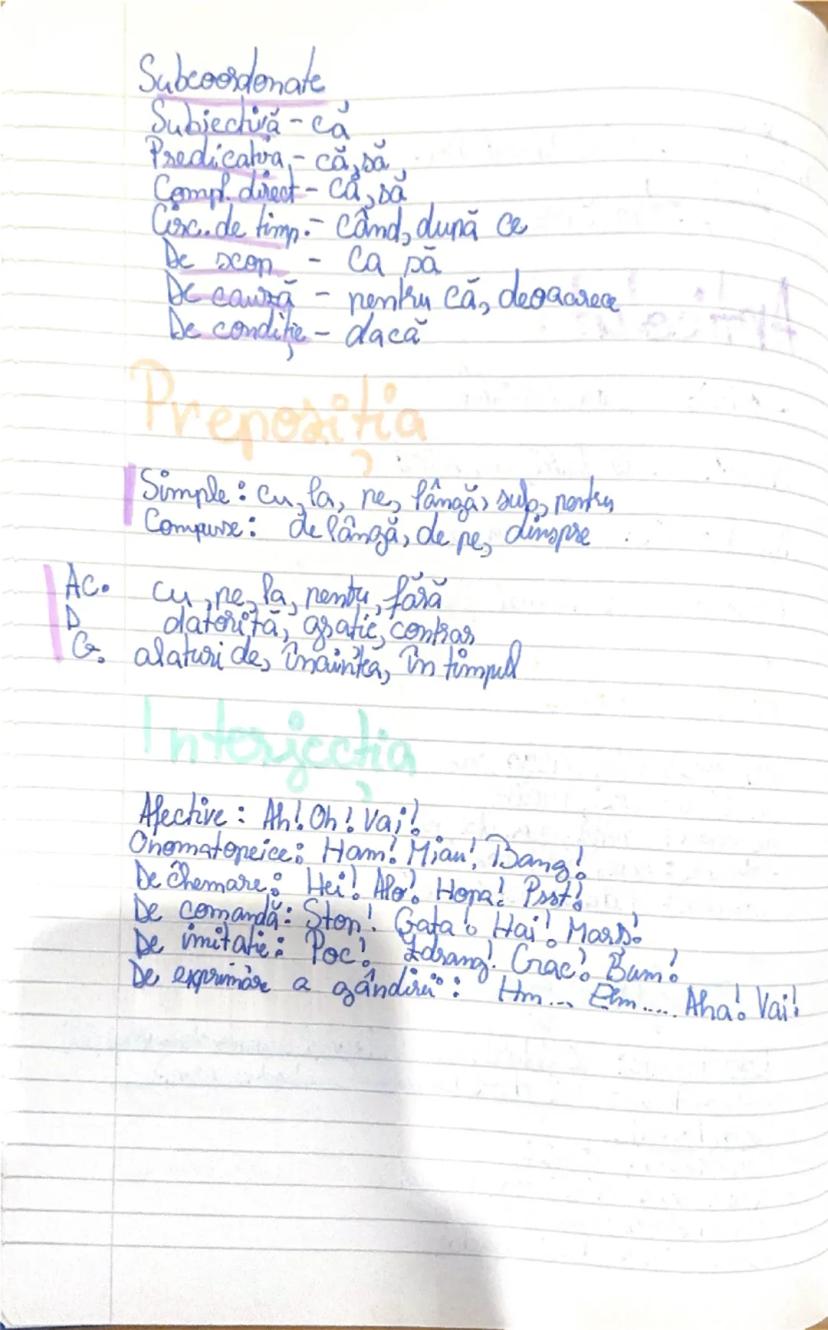 Subcoordonate
Subiectivă - că
Predicativă - că, să
Compl. direct - că, să
Circ. de timp. - când, după ce
De scop - ca să
De cauză - pentru că, deoarece
De condiție - dacă
Prepoziția
Simple: cu, la, pe, lângă, sub, pentru
Compuse: de lângă, de pe, dinspre
AC. cu, pe, la, pentru, fără
D datorită, grație, contrar
G. alaturi de, înaintea, în timpul
Interjecția
Afective: Ah! Oh! Vai!
Onomatopeice: Ham! Miau! Bang!
De chemare: Hei! Alo! Hopa! Psst!
De comandă: Stop! Gata! Hai! Marș!
De imitatie: Poc! Zdrang! Crac! Bum!
De exprimare a gândirii: Hm... Ehm..... Aha! Vai!